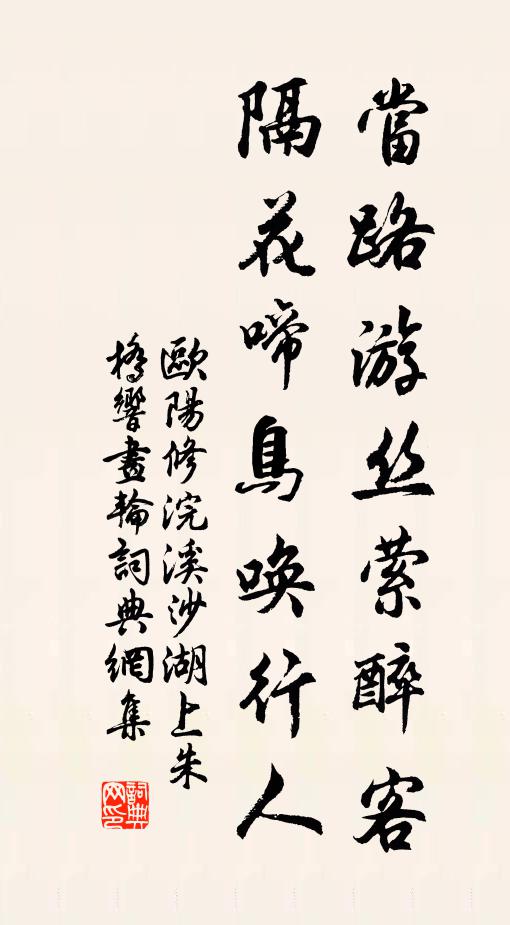 當路游丝萦醉客
隔花啼鳥唤行人
歐陽修浣溪沙湖上朱
橋響畫輪詞典網集
詞典网印